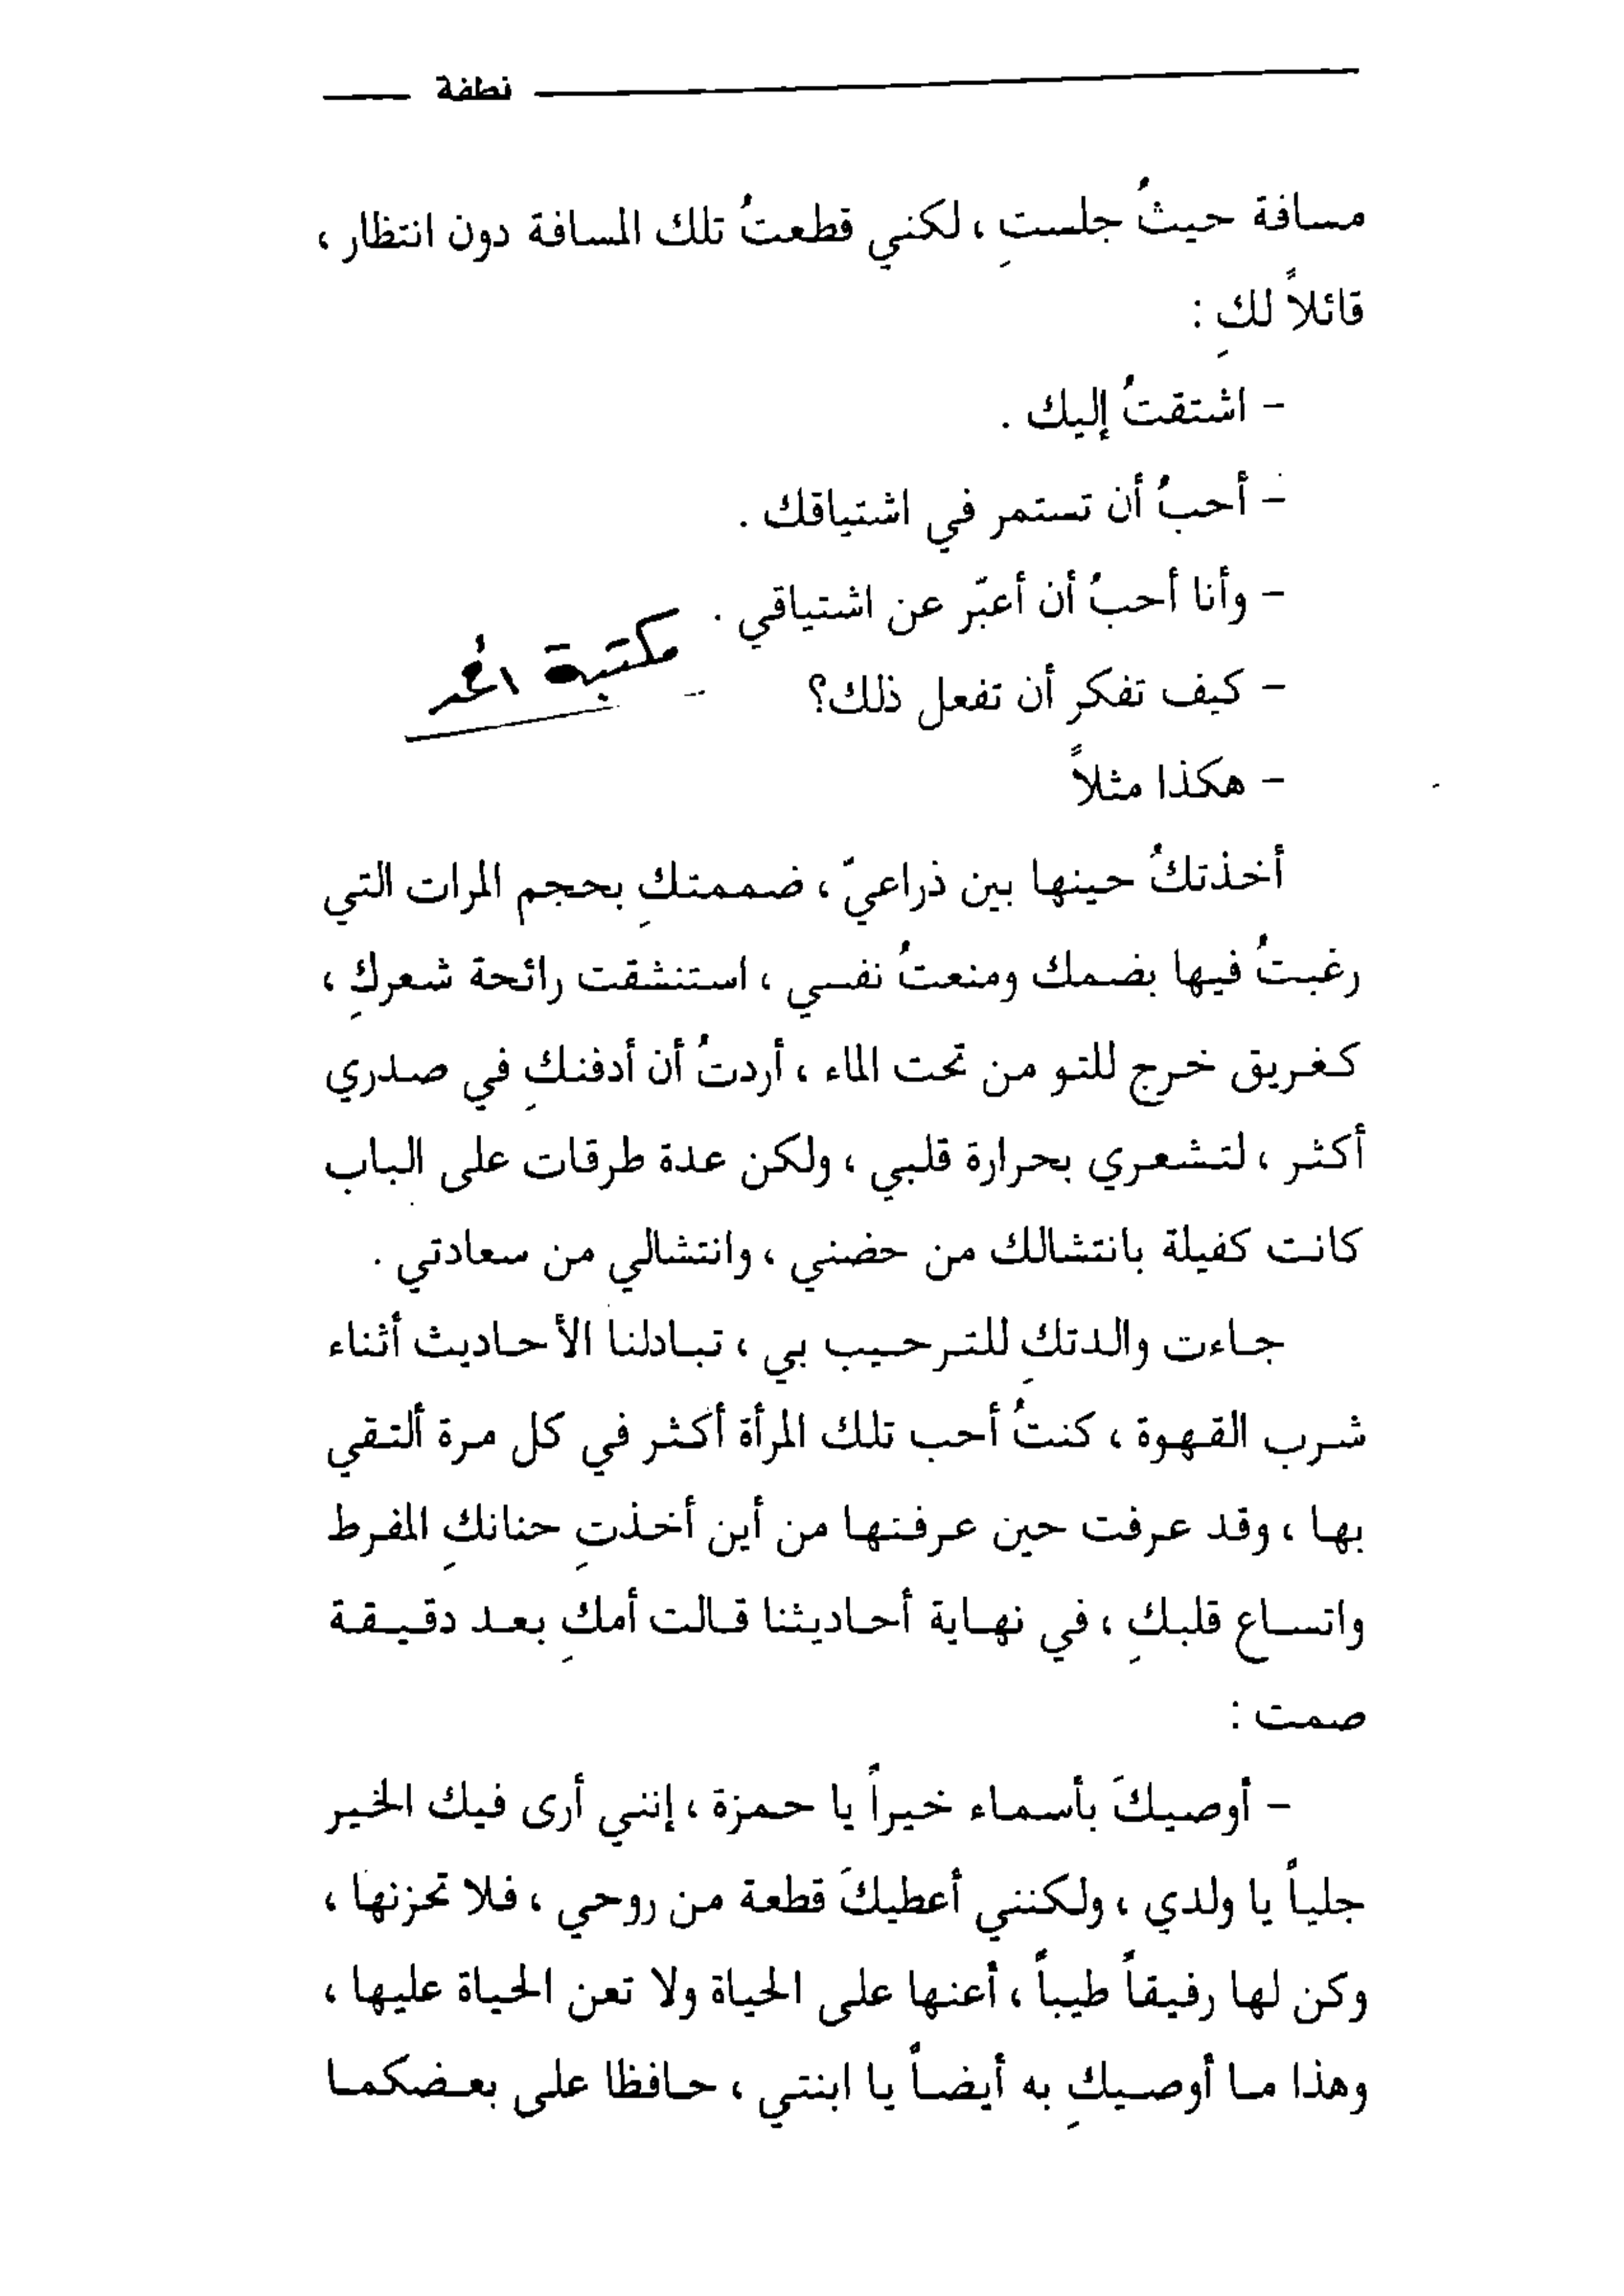 نطفة
مسافة حيثُ جلستِ ، لكني قطعتُ تلك المسافة دون انتظار ،
قائلاً لكِ :
- اشتقتُ إليك .
- أحبُ أن تستمر في اشتياقك .
- وأنا أحبُ أن أعبّر عن اشتياقي .
مكتبة
- كيف تفكر أن تفعل ذلك؟
- هكذا مثلاً
أخذتكُ حينها بين ذراعيّ ، ضممتكِ بحجم المرات التي
رغبتُ فيها بضمك ومنعتُ نفسي ، استنشقت رائحة شعركِ ،
كغريق خرج للتو من تحت الماء ، أردتُ أن أدفنكِ في صدري
أكثر ، لتشعري بحرارة قلبي ، ولكن عدة طرقات على الباب
كانت كفيلة بانتشالك من حضني ، وانتشالي من سعادتي .
جاءت والدتكِ للترحيب بي ، تبادلنا الأحاديث أثناء
شرب القهوة ، كنتُ أحب تلك المرأة أكثر في كل مرة ألتقي
بها ، وقد عرفت حين عرفتها من أين أخذتِ حنانكِ المفرط
واتساع قلبكِ ، في نهاية أحاديثنا قالت أمكِ بعد دقيقة
صمت :
- أوصيكَ بأسماء خيراً يا حمزة ، إنني أرى فيك الخير
جلياً يا ولدي ، ولكنني أعطيكَ قطعة من روحي ، فلا تحزنها ،
وكن لها رفيقاً طيباً ، أعنها على الحياة ولا تعن الحياة عليها ،
وهذا ما أوصيكِ به أيضاً يا ابنتي ، حافظا على بعضكما